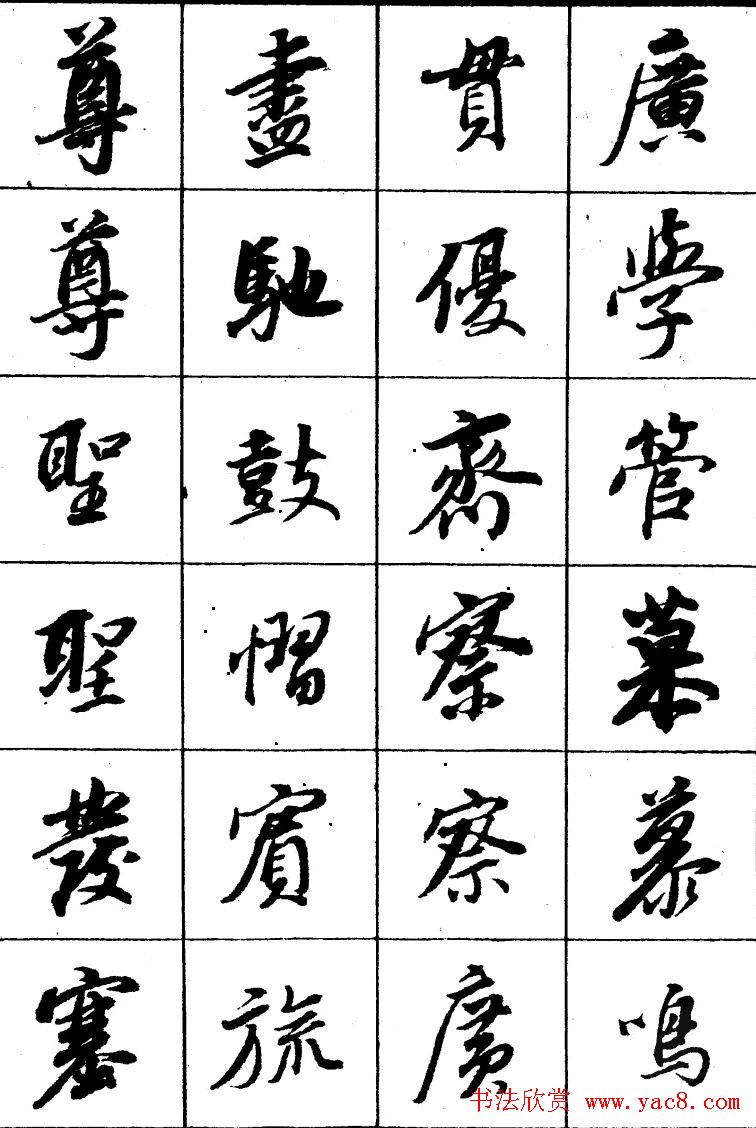 尊尊聖聖發塞
盡馳鼓慴賓旒
貫優齋察察廣
廣學管慕慕鳴
书法欣赏 www.yac8.com